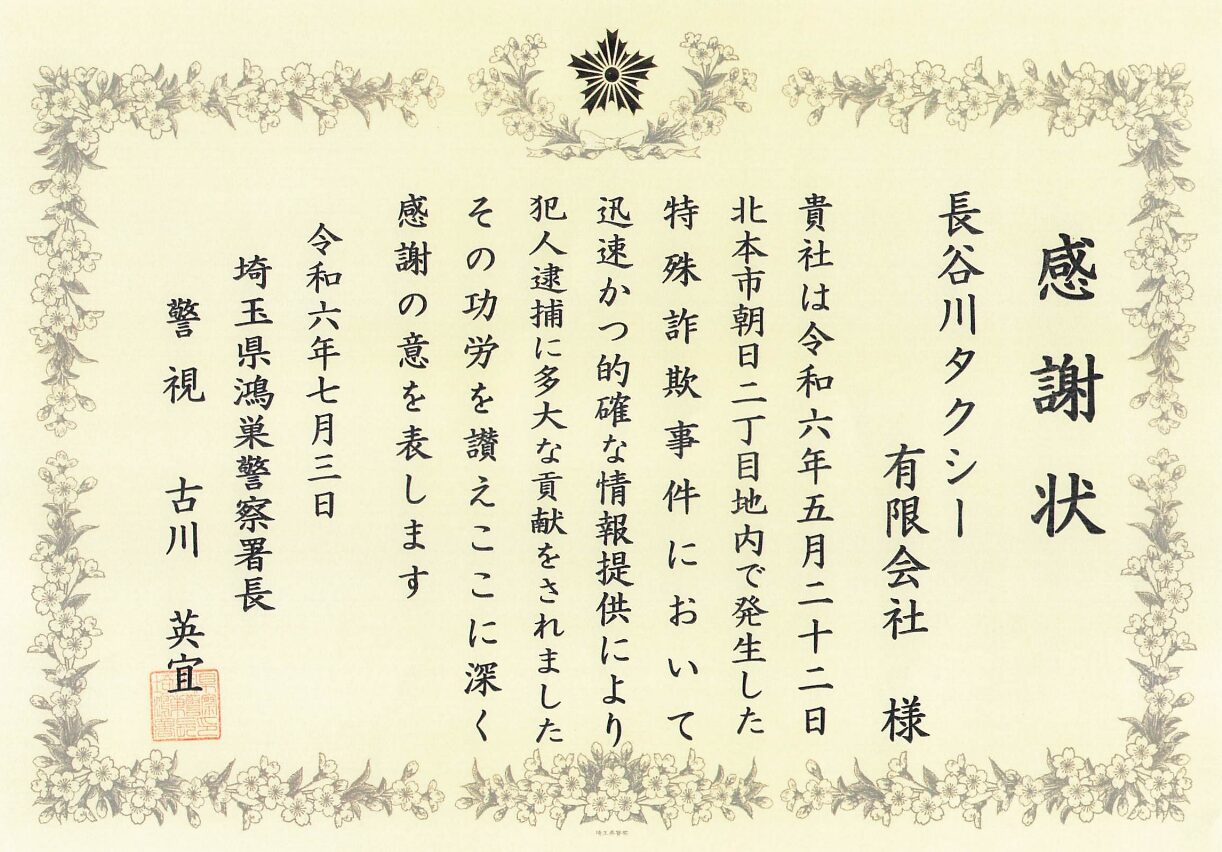 感謝状
長谷川タクシー
有限会社 様
貴社は令和六年五月二十二日
北本市朝日二丁目地内で発生した
特殊詐欺事件において
迅速かつ的確な情報提供により
犯人逮捕に多大な貢献をされました
その功労を讃えここに深く
感謝の意を表します
令和六年七月三日
埼玉県鴻巣警察署長
警視 古川 英宜
埼玉県警察